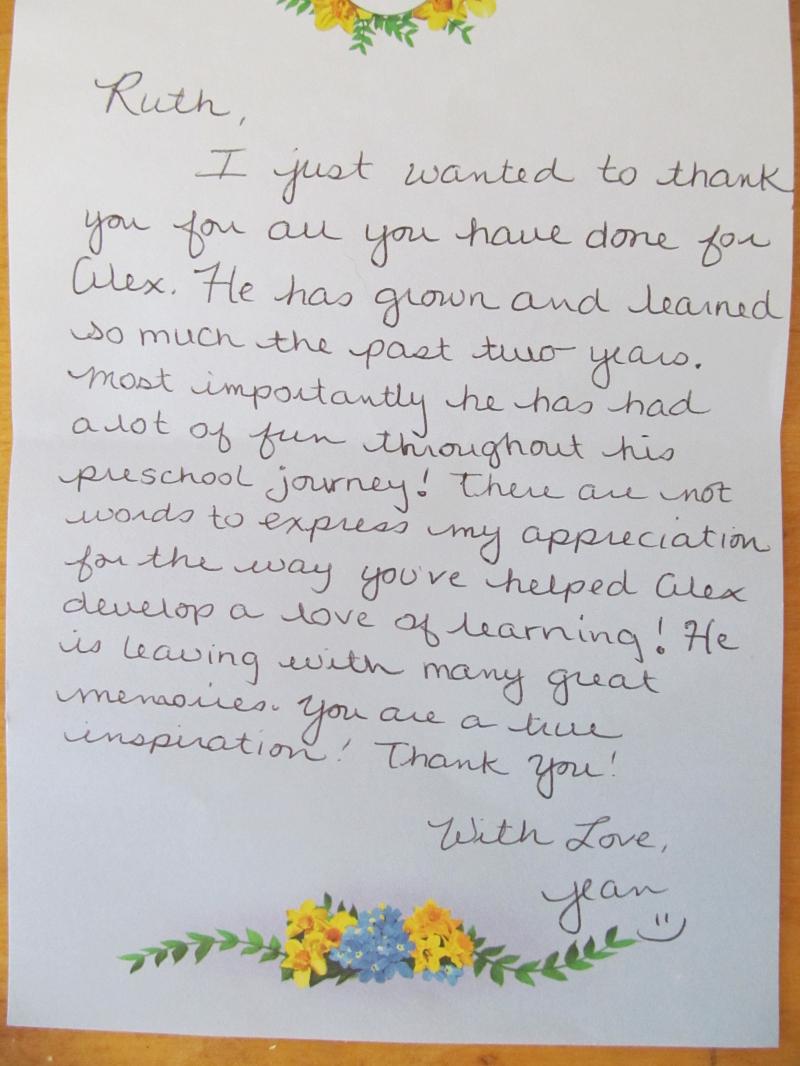 Ruth,
I just wanted to thank
you for all you have done for
Alex. He has grown and learned
so much the past two years.
Most importantly he has had
a lot of fun throughout his
preschool journey! There are not
words to express my appreciation
for the way you've helped Alex
develop a love of learning! He
is leaving with many great
memories. You are a true
inspiration! Thank you!
With Love,
Jean